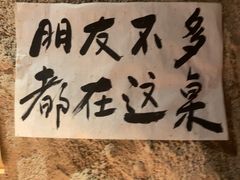 朋友不多
都在这桌